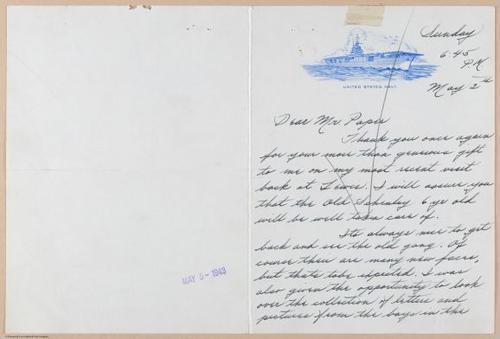 Sunday
6:45
P.M.
May 2nd
UNITED STATES NAVY
Dear Mr. Paper
Thank you once again
for your more than generous gift
to me on my most recent visit
back at Lewis. I will assure you
that the Old Schenley 6 yr old
will be well taken care of.
Its always nice to get
back and see the old gang. Of
course there are many new faces,
but thats to be expected. I was
also given the opportunity to look
over the collection of letters and
pictures from the boys in the
MAY 5-1943